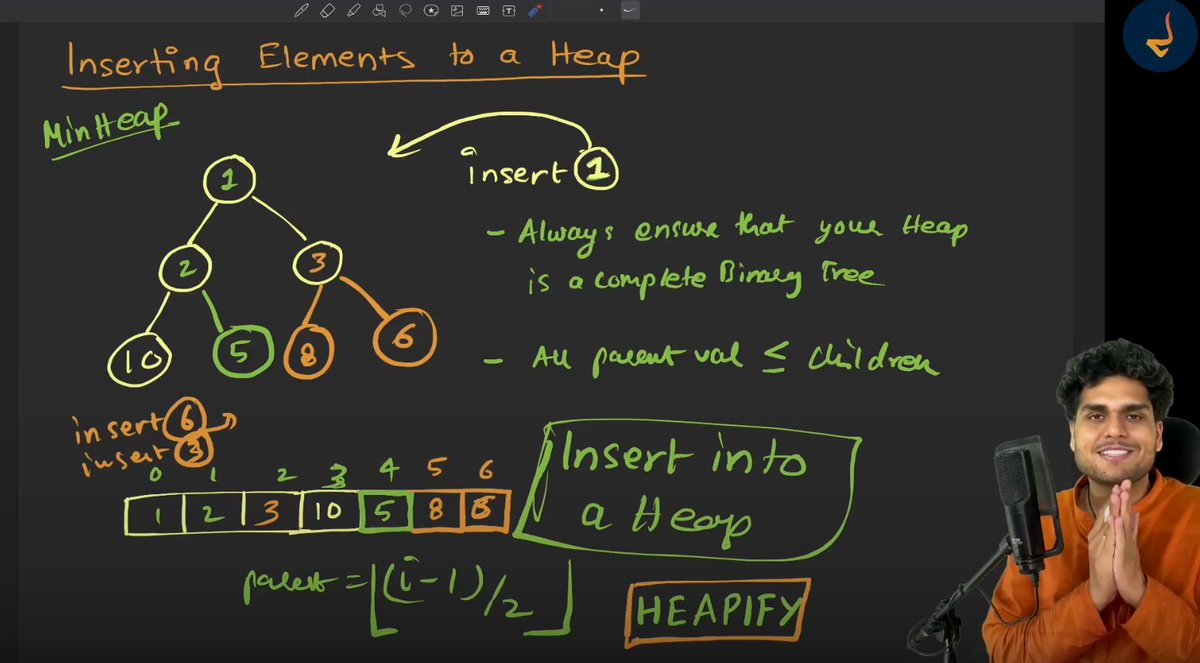 Inserting Elements to a Heap
MinHeap
insert 1
1
2
3
10
5
8
6
- Always ensure that your Heap
is a complete Binary Tree
- All parent val ≤ children
insert 6
insert 3
0 1 2 3 4 5 6
1 2 3 10 5 8
Insert into
a Heap
parent = ⌊(i-1)/2⌋
HEAPIFY